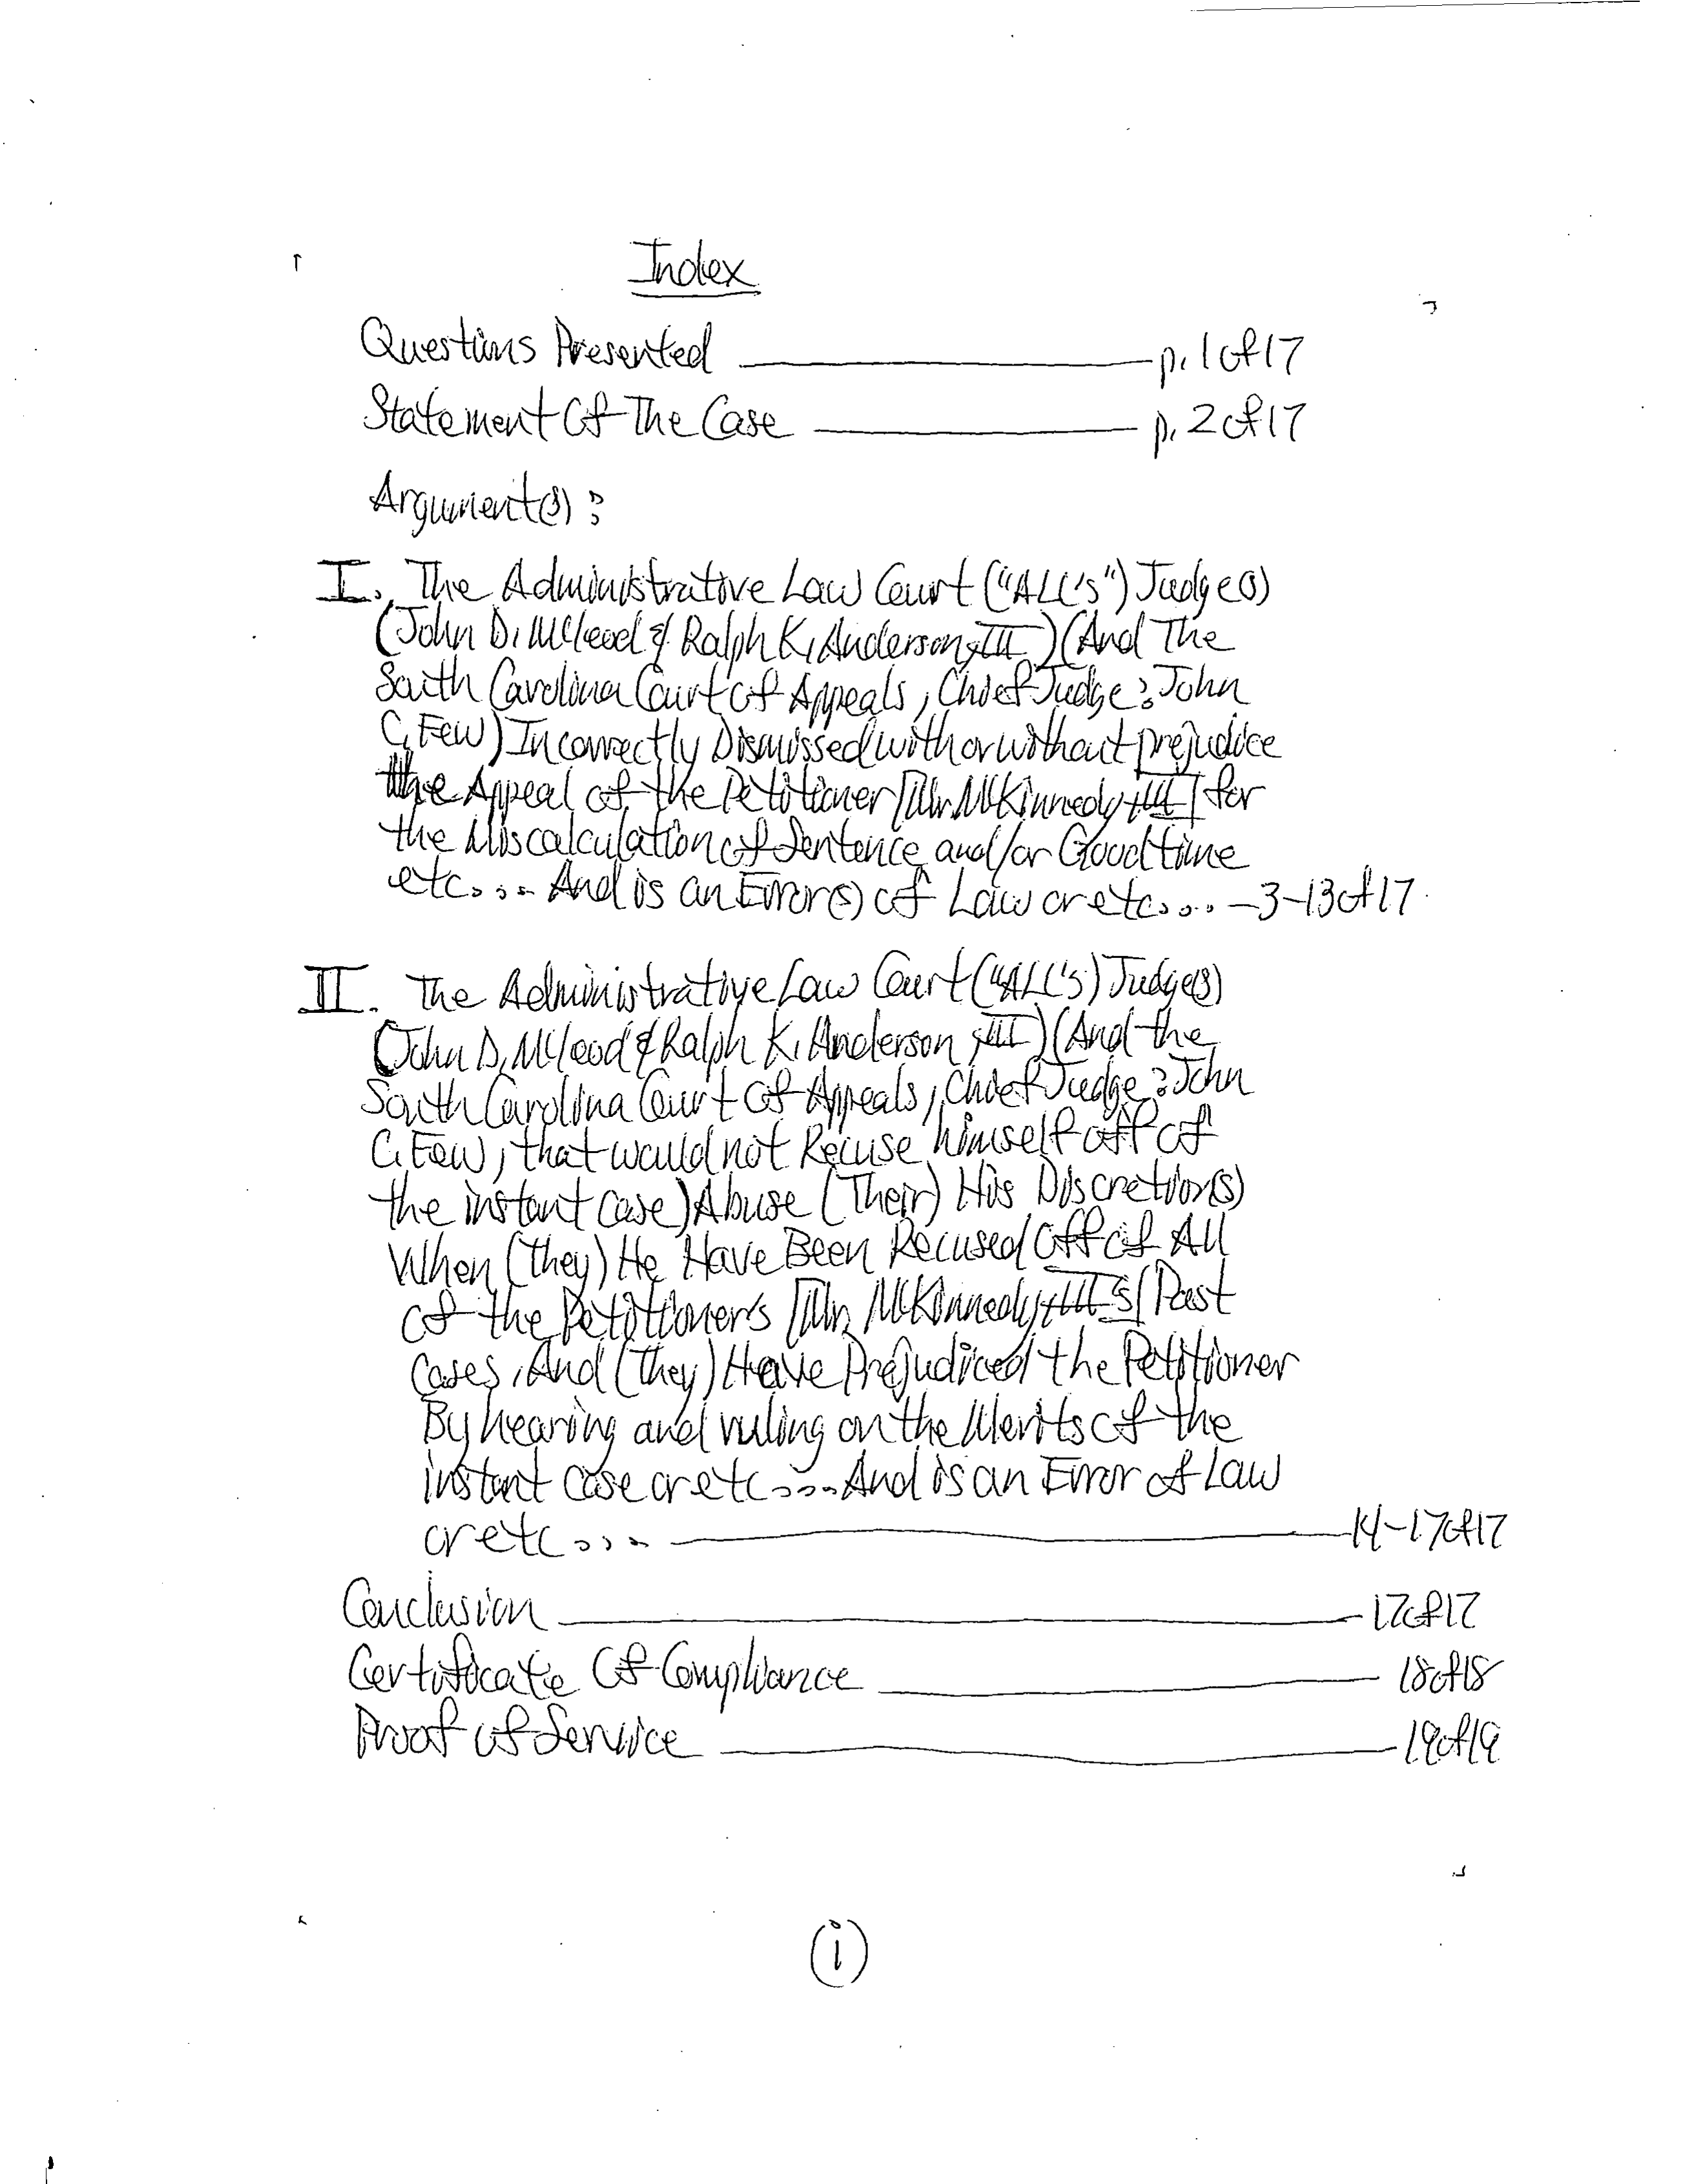 Index
Questions Presented p. 1 of 17
Statement Of The Case p. 2 of 17
Argument(s):
I. The Administrative Law Court ("ALC's") Judge(s)
(John D. McLeod & Ralph K. Anderson, III) (And The
South Carolina Court of Appeals, Chief Judge: John
C. Few) Incorrectly Dismissed with or without prejudice
the Appeal of the Petitioner [Mr. McKinnedy, III] for
the Miscalculation of Sentence and/or Good time
etc.... And is an Error(s) of Law or etc.... - 3-13 of 17
II. The Administrative Law Court ("ALC's) Judge(s)
(John D. McLeod & Ralph K. Anderson, III) (And the
South Carolina Court Of Appeals, Chief Judge: John
C. Few, that would not Recuse himself off of
the instant case) Abuse (Their) His Discretion(s)
When (they) He Have Been Recused Off of All
of the Petitioner's [Mr. McKinnedy, III's] Past
Cases, And (They) Have Prejudiced the Petitioner
By hearing and ruling on the Merits of the
instant case or etc.... And is an Error of Law
or etc... 14-17 of 17
Conclusion 17 of 17
Certificate Of Compliance 18 of 18
Proof of Service 19 of 19
(i)